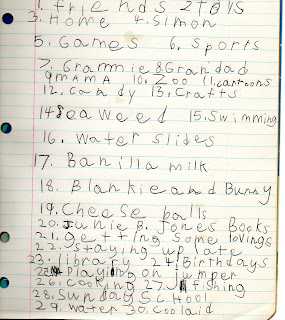 1. friends 2 toys
3. Home 4. Simon
5. Games 6. Sports
7. Grammie 8. Grandad
9 mama 10. Zoo 11. cartoons
12. candy 13. Crafts
14 Sea weed 15. Swimming
16. water slides
17. Banilla milk
18. Blankie and Bunny
19. Cheese balls
20. Junie B. Jones Books
21. getting some lovings
22. staying up late
23. library 24 Birthdays
Playing on jumper
26. cooking 27 fishing
28. Sunday School
29. water 30. Coolaid